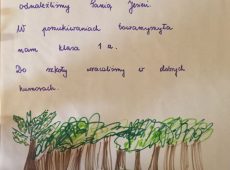 odnaleźliśmy Panią Jesień.
W poszukiwaniach towarzyszyła
nam klasa 1 a.
Do szkoły wracaliśmy w dobrych
humorach.